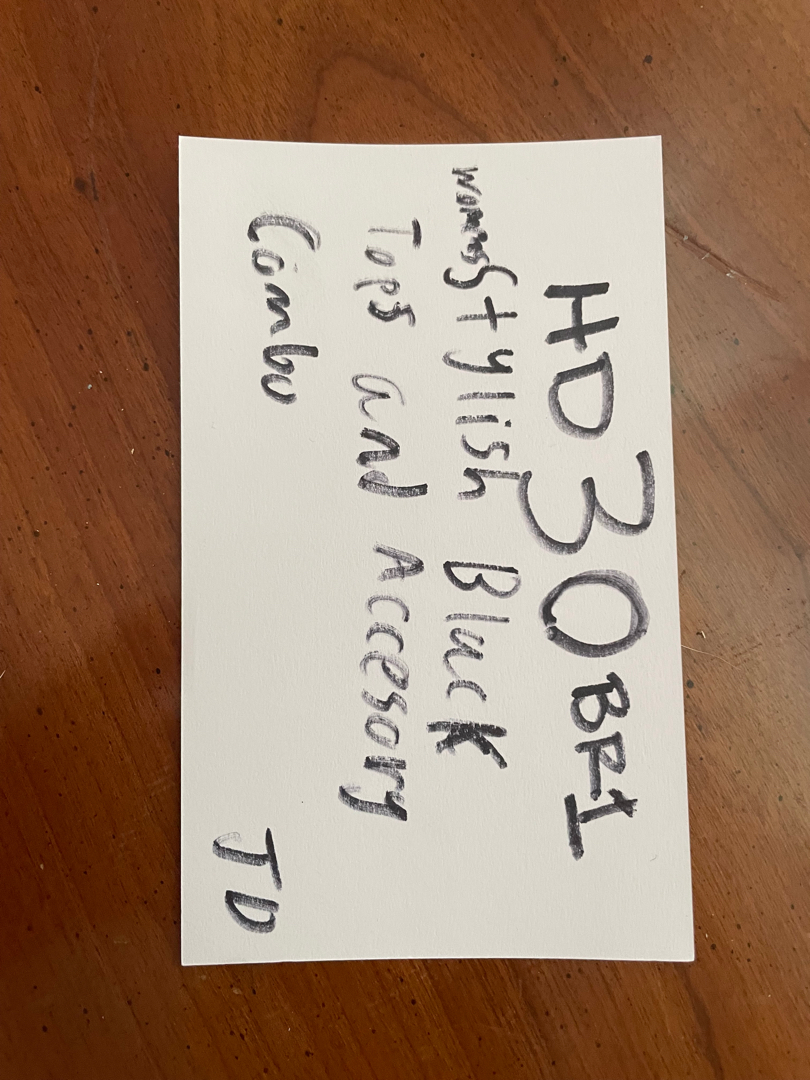 HD30BR1
womens Stylish Black
Tops and Accesory
Combo
JD